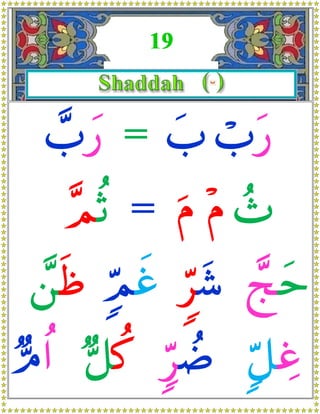 19
Shaddah (ّ)
رَ بْ بَ = رَبَّ
ثُ مْ مَ = ثُمَّ
حَجَّ شَرٍّ غَمٍّ ظَنَّ
غِلٍّ ضُرٍّ كُلٌّ اُمٌّ